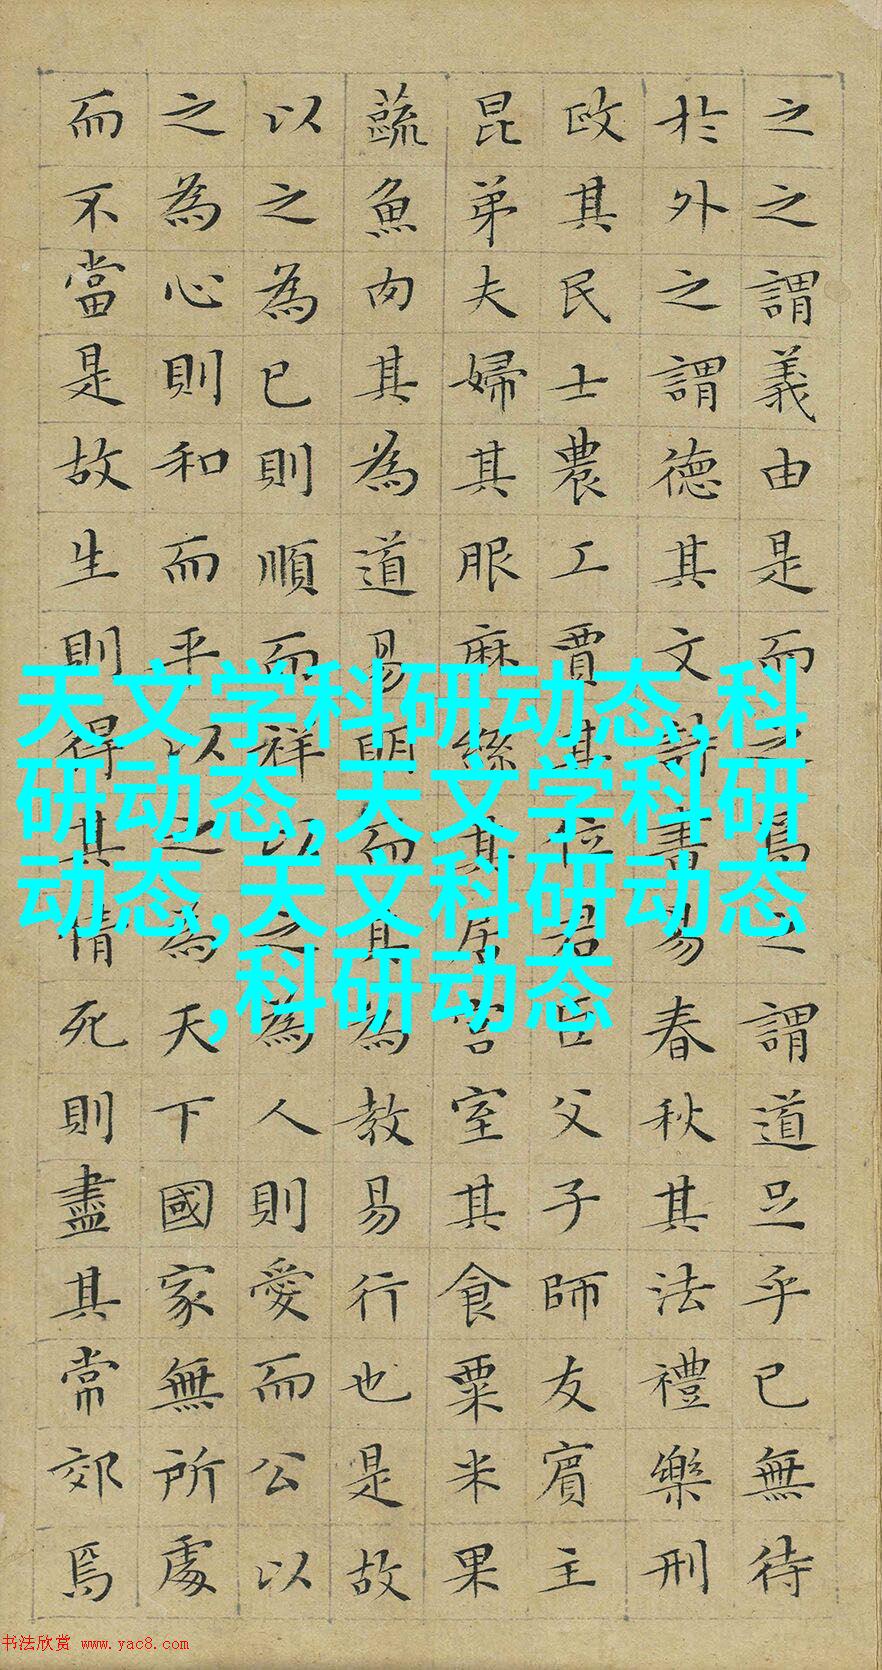 之之謂義由是而之焉之謂道足乎已無待
於外之謂德其文詩書易春秋其法禮樂刑
政其民士農工賈其位君臣父子師友賓主
昆弟夫婦其服麻絲其居宮室其食粟米果
蔬魚肉其為道易明而其為教易行也是故
以之為已則順而祥以之為人則愛而公以
之為心則和而平以之為天下國家無所處
而不當是故生則得其情死則盡其常郊焉
天文学科研动态,科
研动态,天文学科研
动态,天文科研动态
,科研动态
书法欣赏 www.yac8.com